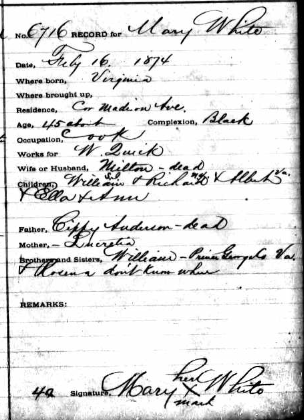 No. 6716 RECORD for Mary White
Date, Feby 16. 1874
Where born, Virginia
Where brought up,
Residence, Cor Madison Ave.
Age, 45 about Complexion, Black
Occupation, Cook
Works for W. Quick
Wife or Husband, Milton - dead
Children, William & Richard & Albert Va.
& Ella & Ann
Father, Cippy Anderson - dead
Mother, - Lucretia
Brothers and Sisters, William - Prince George Co Va.
& Rosena don't know where
REMARKS:
her
40 Signature, Mary X White
mark